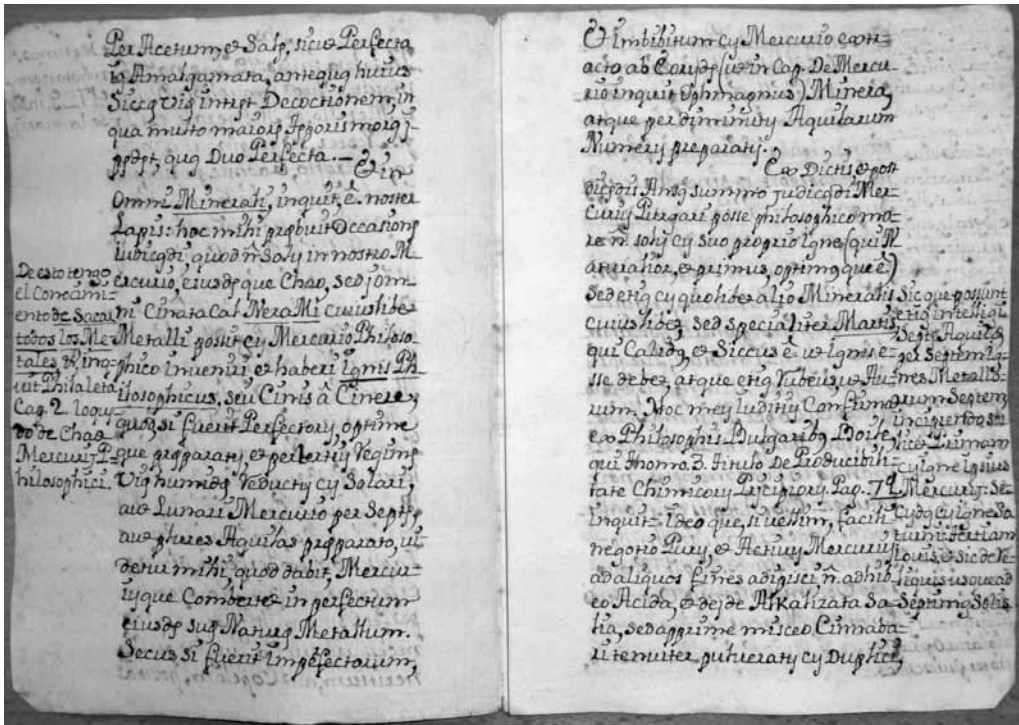 Per Acetum, & Sale, sicis Perfecta
io Amalgamata, anteque huius
Siccę Vię intret Decoctionem, in
qua multo maioris
que Duo Perfecta. — Et in
Omni Minerali, inquit ê. noster
Lapis: hoc mihi prębuit Occasionę
iudicądi, quod ñ soly in nostro M
ercurio, eiusdęque Chao, sed j omi
ni Cinara Cal NeraMi cuiuslibe
Metalli possit cy Mercurio Philoso-
phico inveniri et haberi Ignis Ph
ilosophicus, seu Cinis â Cinere,
quos, si fuerit Perfectory, optime
que pręparaty et per
Vię humidę reducty cy Solari,
aut Lunari Mercurio per Septę,
aut plures Aquilas pręparato, vi
detur mihi quod dabit, Mercur-
ijque Comberte in perfectum
eiusdę suę Naturę Metallum.
Secus si fuerit Imperfectorum,
De esto tengo
el Conocimi-
ento de Sacar
todos los Me-
tales, & inq-
uit Philaleta
Cap. 2. loqu-
do de Chao
Mercurij P-
hilosophici.
Et Imbibitum cy Mercurio extr-
acto ab Eorydę (ut in Cap. De Mercu-
rio inquit Sophmagnus) Minera,
atque per diminuty Aquilarum
Numery preparaty.
Ex Dictis & post
dicędis Ansą summo judicądi Mer-
curiy Purgari posse philosophico mo-
re ñ soly cy suo proprio Igne (qui N
aturalior, & primus, optimąque ê)
Sed etią cy quolibet alio Mineralis
cuiuslibet, sed specialiter Martis,
qui Calidą, & Siccus ê ut Ignis e-
sse debet, atque etią Rubeus, ut Au-
rum. Hoc mey Iuditiy Confirmo
ex Philosophis Bulgaribą Boile,
qui thomo. 3. titulo De Producibili-
tate Chimicory Prįcipiory. Pag. 79.
inquit: Ideoque, si vellim, facili
negotio Pury, & Activy Mercuriy
ad aliquos fines adipisci ñ. adhib
eo Acida, & deįde Alkalizata Sa-
lia, sed apprime misceo Cinnaba-
ri tenuiter pulveraty cy Duplici,
Sic que possunt
etią intelligi
Septę Aquilę
per Septem Ig-
nes Metallo-
rum Septem,
incipiendo sci
licet Primam
cy igne ipsius
Mercurij: Se-
cydą cy igne Sa
turni: tertiam
Iouis, & sic de re
liquis usque ad
Septimą Solis